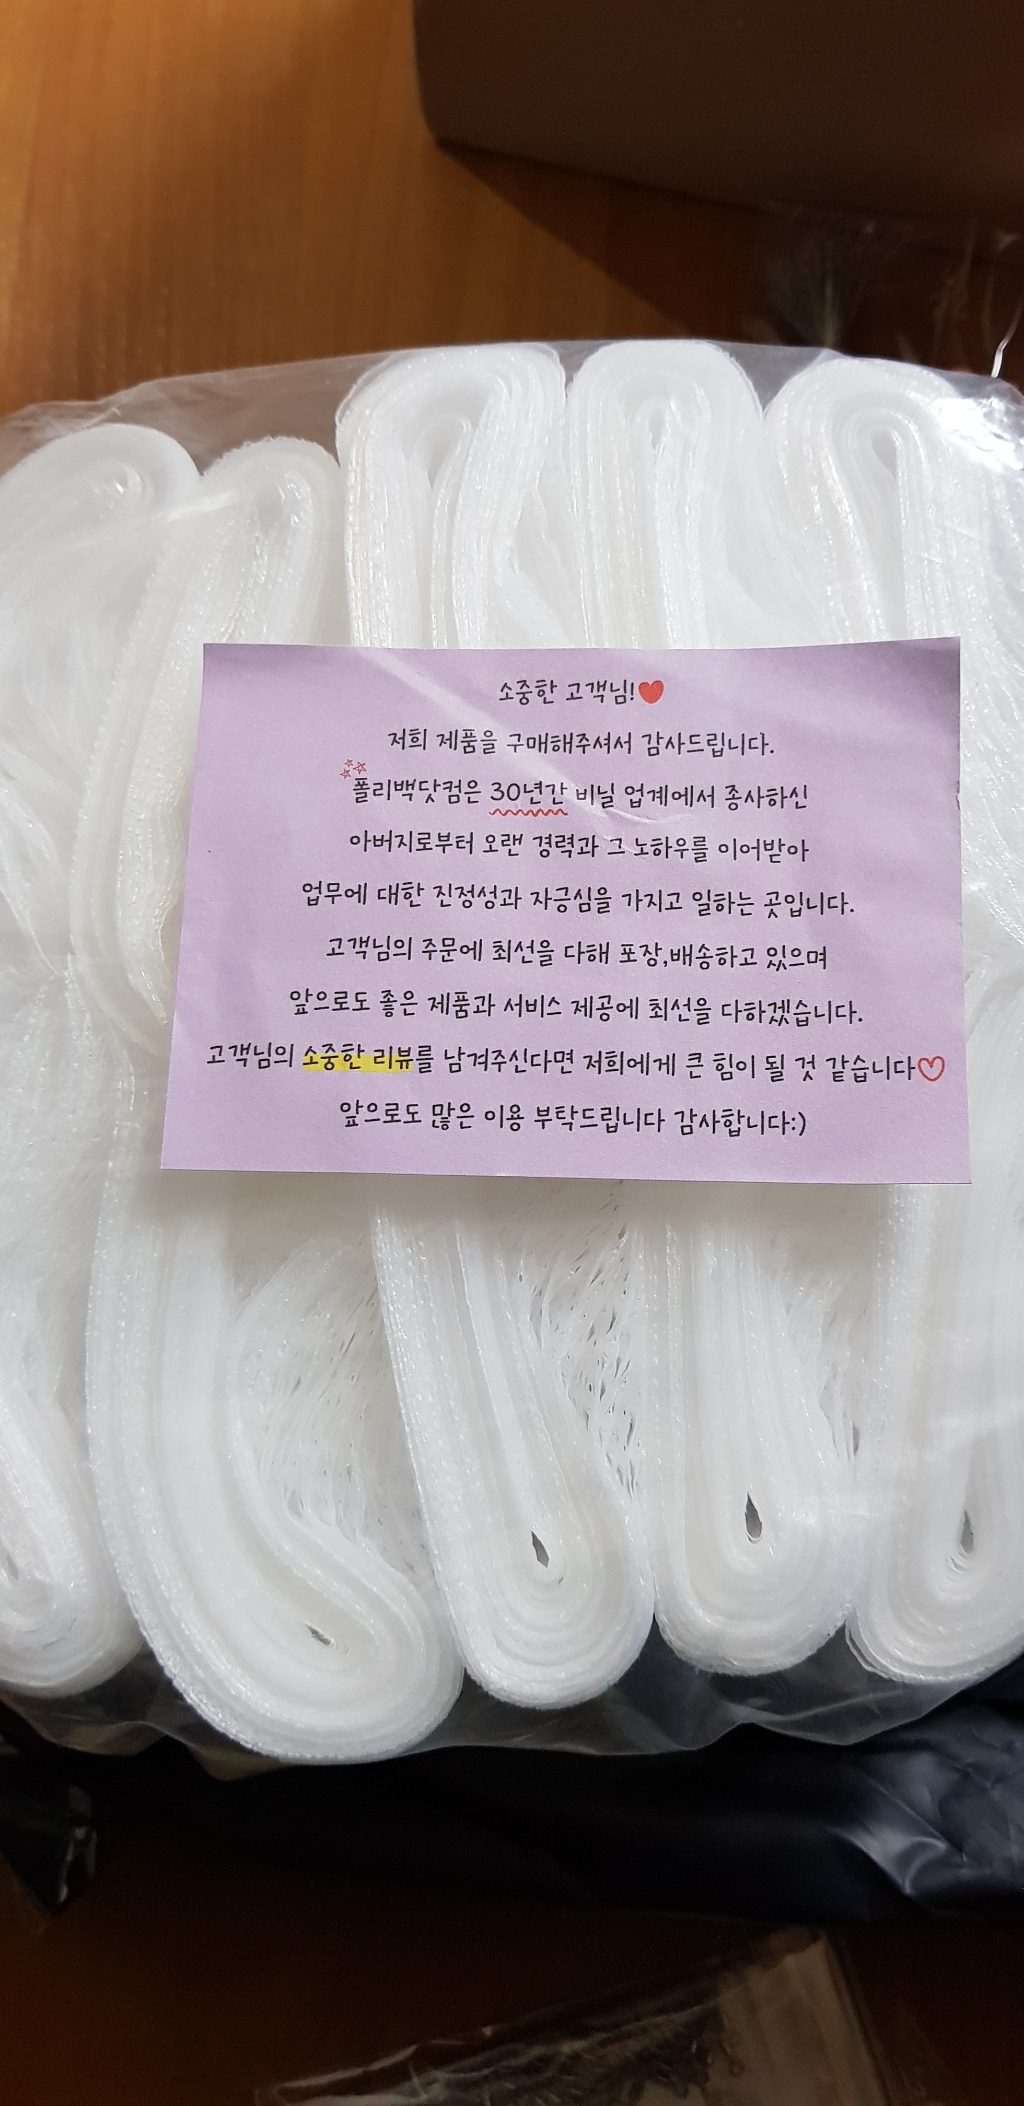 소중한 고객님!❤
저희 제품을 구매해주셔서 감사드립니다.
폴리백닷컴은 30년간 비닐 업계에서 종사하신
아버지로부터 오랜 경력과 그 노하우를 이어받아
업무에 대한 진정성과 자긍심을 가지고 일하는 곳입니다.
고객님의 주문에 최선을 다해 포장,배송하고 있으며
앞으로도 좋은 제품과 서비스 제공에 최선을 다하겠습니다.
고객님의 소중한 리뷰를 남겨주신다면 저희에게 큰 힘이 될 것 같습니다♡
앞으로도 많은 이용 부탁드립니다 감사합니다:)